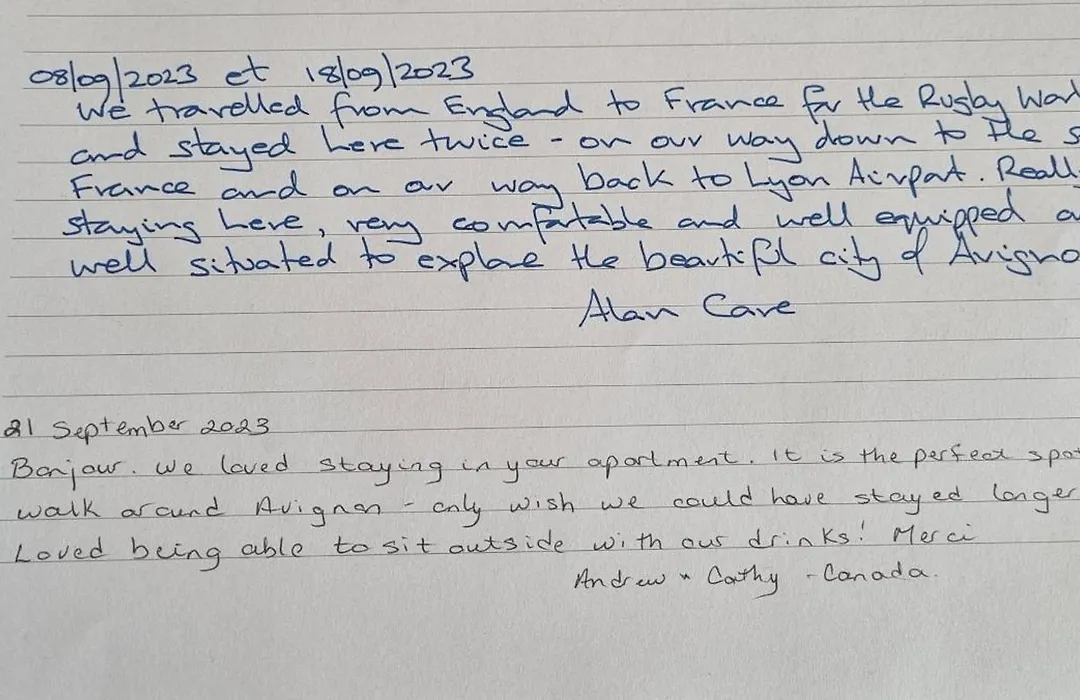 08/09/2023 et 18/09/2023
We travelled from England to France for the Rugby Worl
and stayed here twice - on our way down to the s
France and on our way back to Lyon Airport. Reall
staying here, very comfortable and well equipped a
well situated to explore the beautiful city of Avigno
Alan Care
21 September 2023
Bonjour. We loved staying in your apartment. It is the perfect spot
walk around Avignon - only wish we could have stayed longer
Loved being able to sit outside with our drinks! Merci
Andrew & Cathy - Canada.